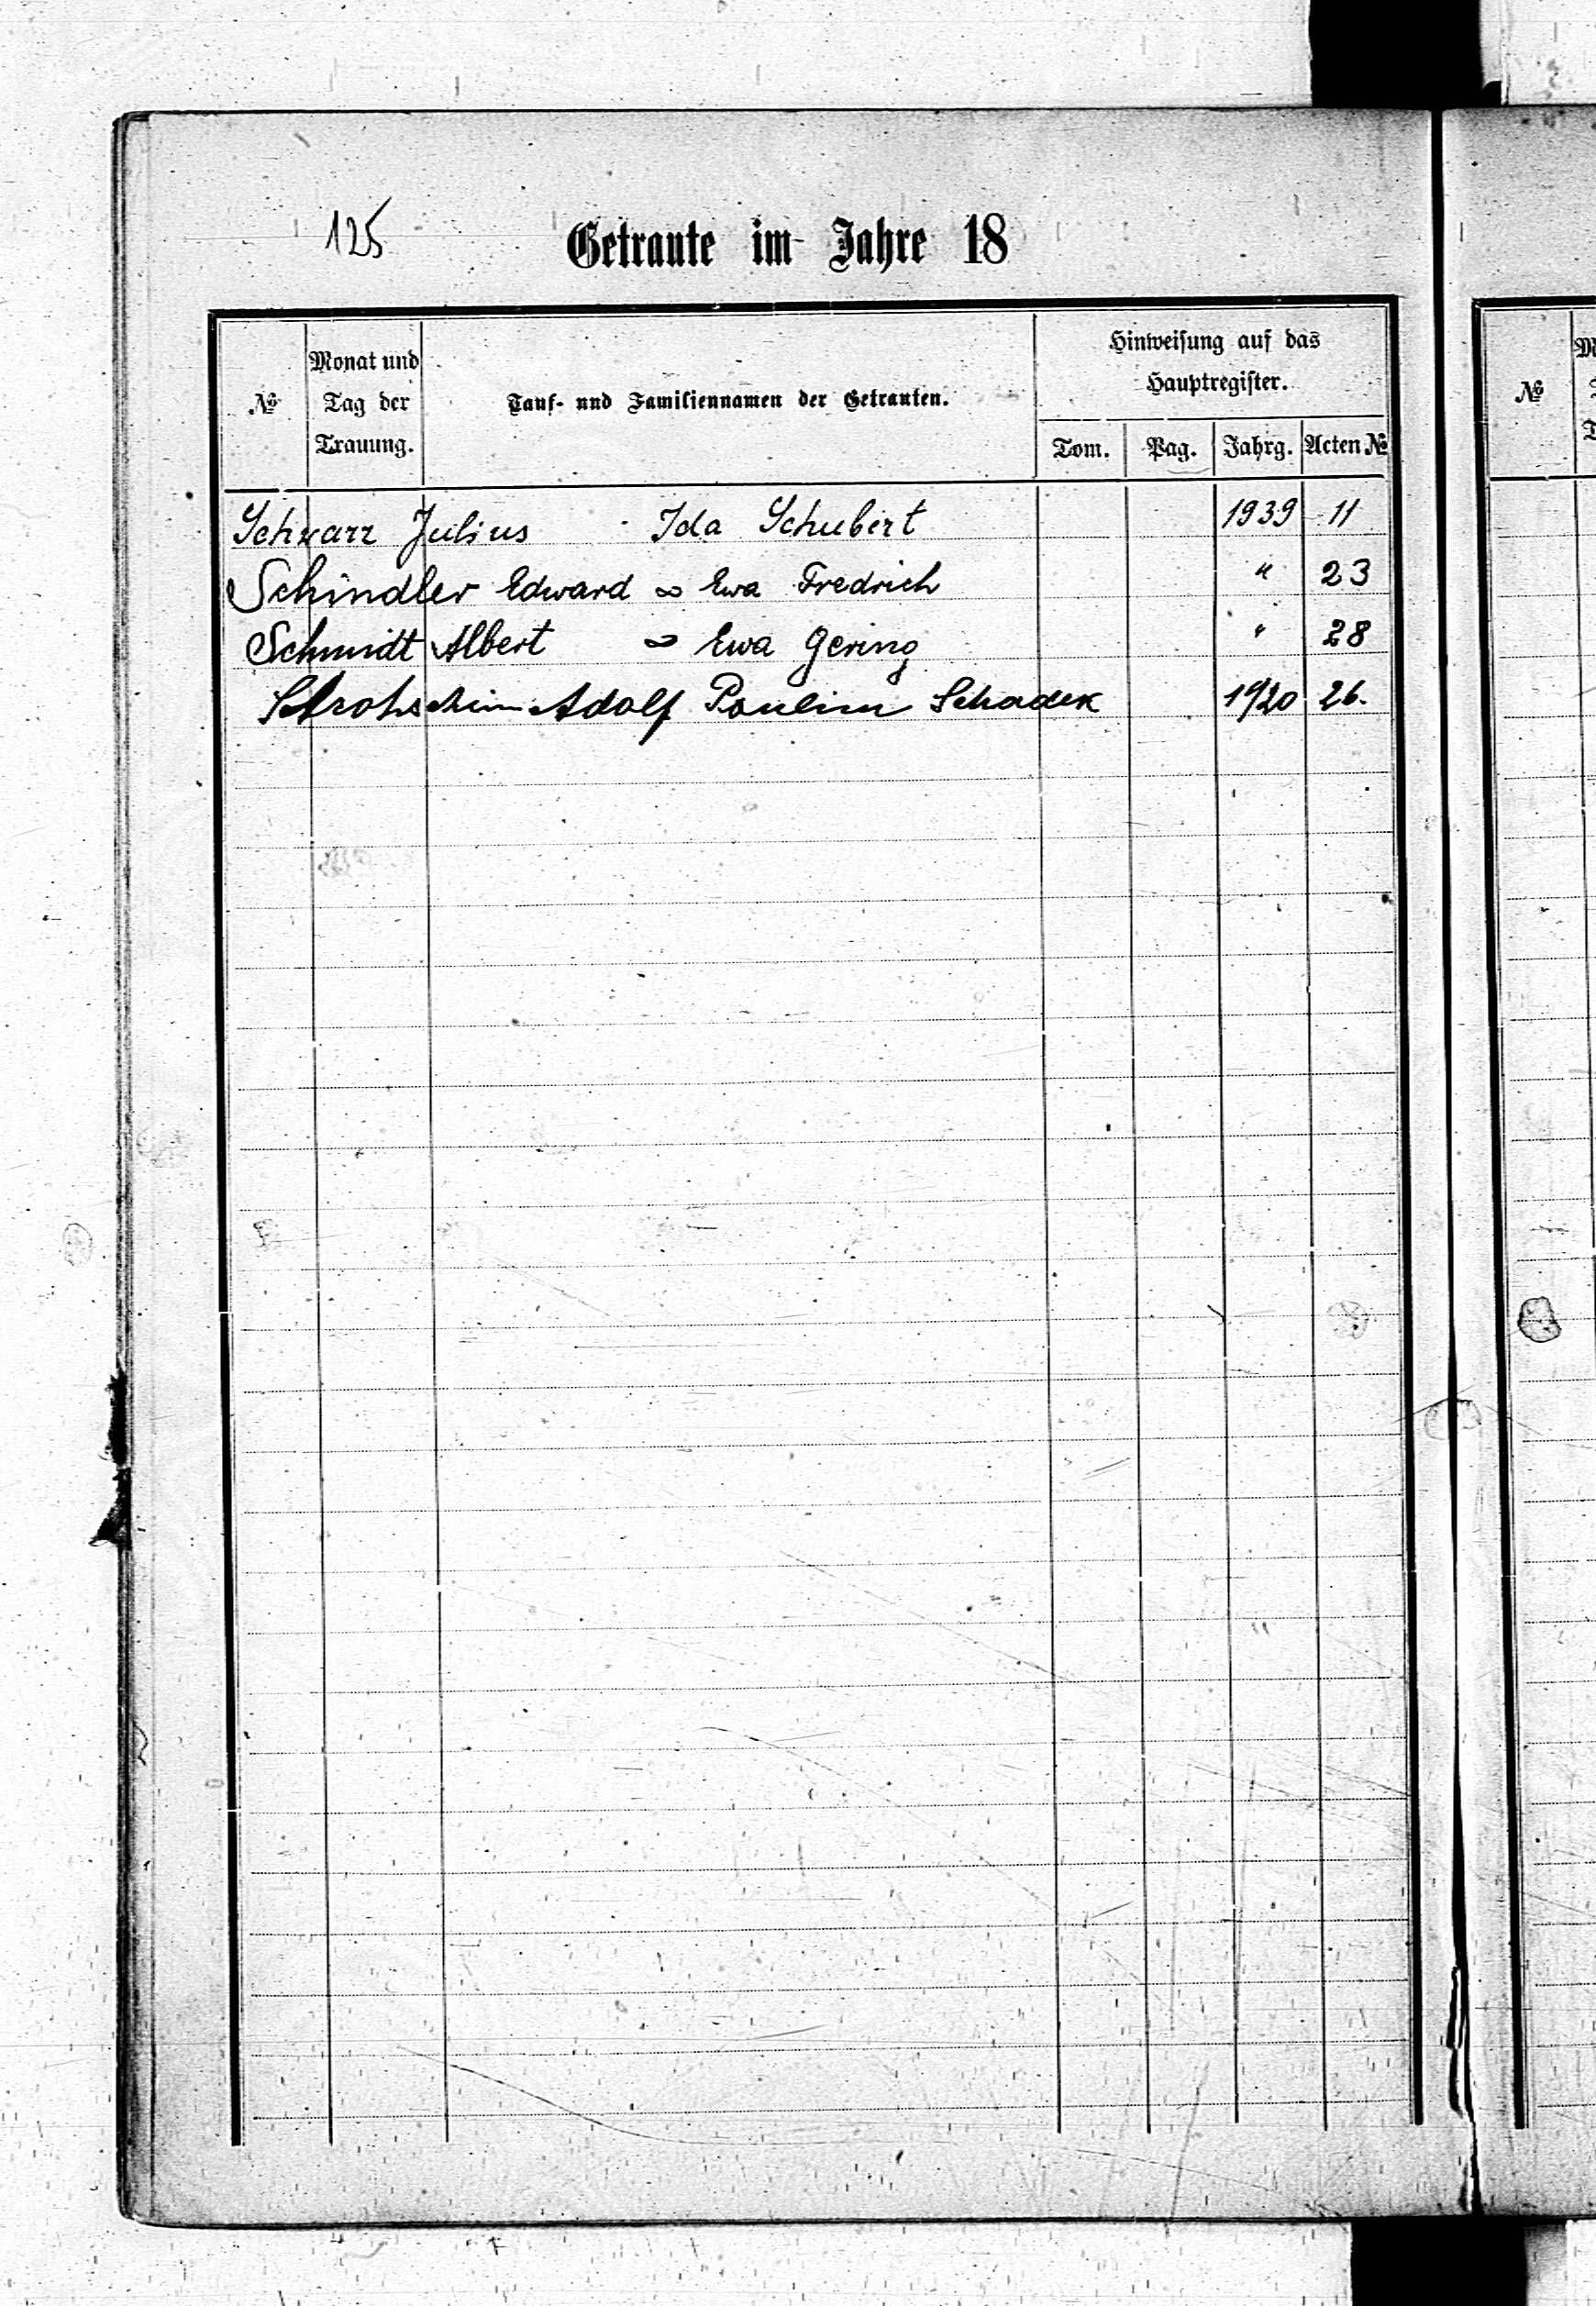 125
Getraute im Jahre 18
№ Monat und Tag der Trauung. Tauf- und Familiennamen der Getrauten. Hinweisung auf das Hauptregister.
Tom. Pag. Jahrg. Acten №
Schwarz Julius Ida Schubert 1939 11
Schindler Edward ∞ Ewa Fredrich " 23
Schmidt Albert ∞ Ewa Gering " 28
Adolf Schadek 1920 26.
№